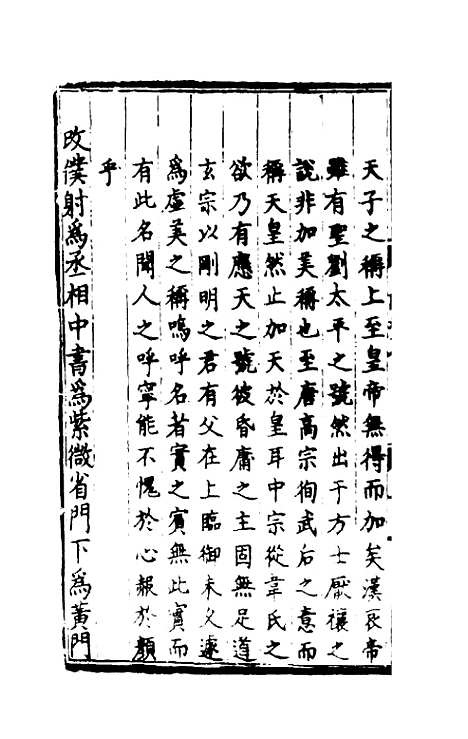 天子之稱上至皇帝無得而加矣漢哀帝
雖有聖劉太平之號然出于方士厭禳之
說非加美稱也至唐高宗徇武后之意而
稱天皇然止加天於皇耳中宗從韋氏之
欲乃有應天之號彼昏庸之主固無足道
玄宗以剛明之君有父在上臨御未久遽
為虛美之稱嗚呼名者實之賓無此實而
有此名聞人之呼寧能不愧於心赧於顏
乎
改僕射為丞相中書為紫微省門下為黃門